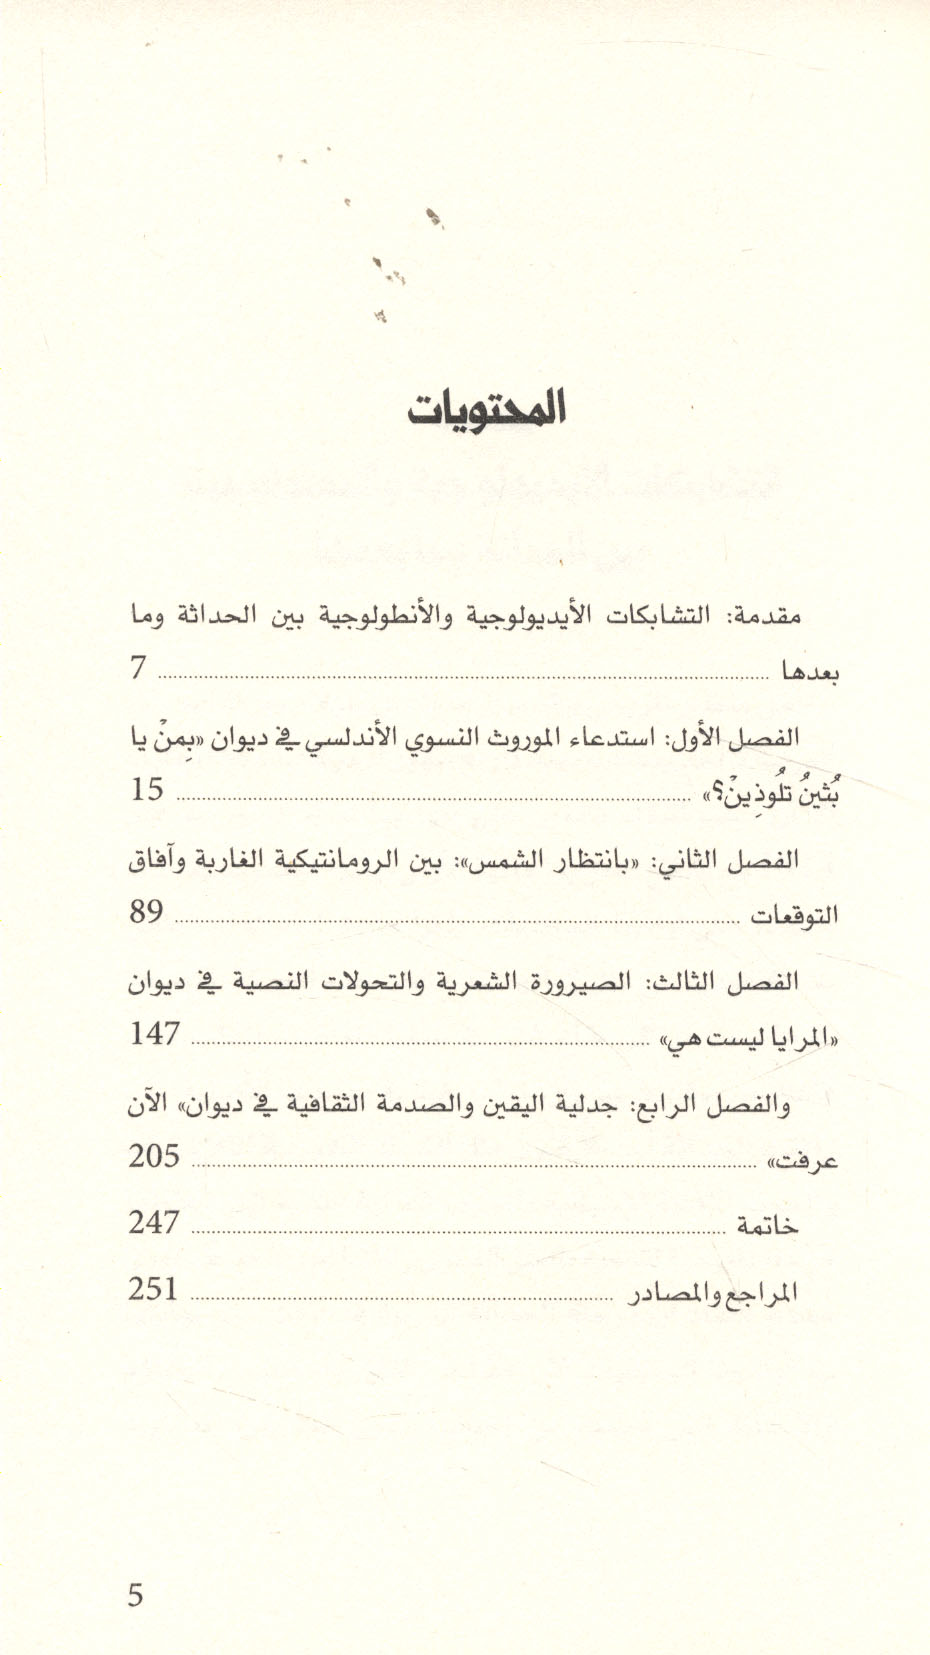 المحتويات
مقدمة: التشابكات الأيديولوجية والأنطولوجية بين الحداثة وما
بعدها ........ 7
الفصل الأول: استدعاء الموروث النسوي الأندلسي في ديوان «بِمنْ يا
بُثينُ تلُوذِينْ؟» ........ 15
الفصل الثاني: «بانتظار الشمس»: بين الرومانتيكية الغاربة وآفاق
التوقعات ........ 89
الفصل الثالث: الصيرورة الشعرية والتحولات النصية في ديوان
«المرايا ليست هي» ........ 147
والفصل الرابع: جدلية اليقين والصدمة الثقافية في ديوان» الآن
عرفت» ........ 205
خاتمة ........ 247
المراجع والمصادر ........ 251
5